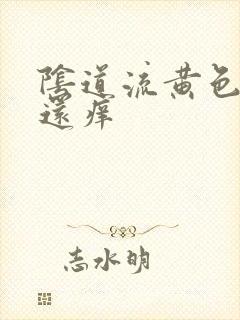 陰道流黄色
還痒
志水明